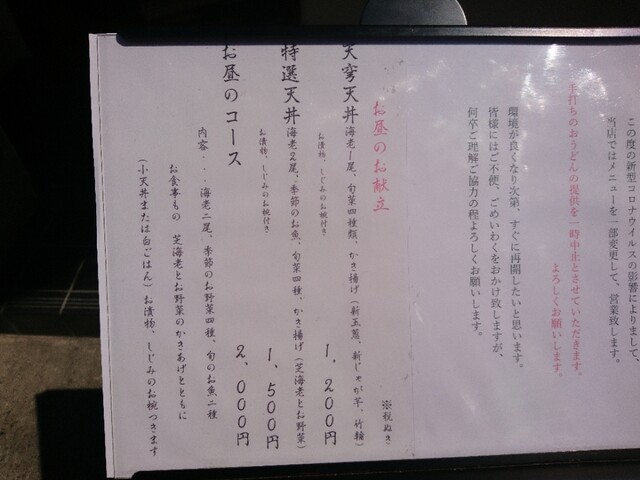 この度の新型コロナウイルスの影響によりまして、
当店ではメニューを一部変更して、営業致します。
手打ちのおうどんの提供を一時中止とさせていただきます。
よろしくお願いします。
環境が良くなり次第、すぐに再開したいと思います。
皆様にはご不便、ごめいわくをおかけ致しますが、
何卒ご理解ご協力の程よろしくお願いします。
お昼のお献立
※税ぬき
天穹天丼 海老1尾、旬菜四種類、かき揚げ(新玉葱、新じゃが芋、竹輪) 1,200円
お漬物、しじみのお椀付き
特選天丼 海老2尾、季節のお魚、旬菜四種、かき揚げ(芝海老とお野菜) 1,500円
お漬物、しじみのお椀付き
お昼のコース 2,000円
内容・・・海老二尾、季節のお野菜四種、旬のお魚二種
お食事もの 芝海老とお野菜のかきあげとともに
(小天丼または白ごはん)お漬物、しじみのお椀つきます